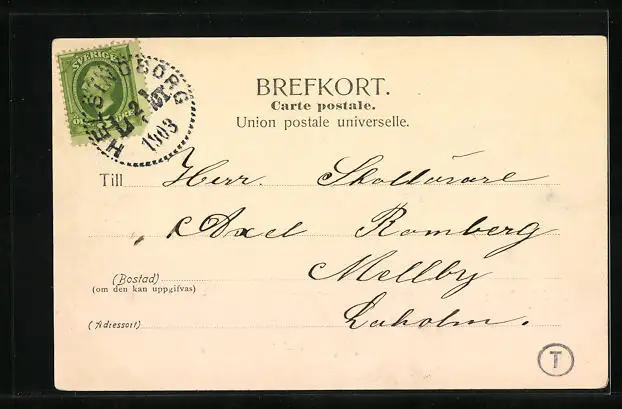 SVERIGE
HELSINGBORG
1903
BREFKORT.
Carte postale.
Union postale universelle.
Till Herr. Skollärare
Axel Romberg
(Bostad) Mellby
(om den kan uppgifvas)
(Adressort) Laholm.
T